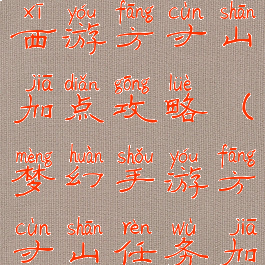 xī yóu fāng cùn shān
西游方寸山
jiā diǎn gōng lüè
加点攻略（
mèng huàn shǒu yóu fāng
梦幻手游方
cùn shān rèn wù jiā
寸山任务加